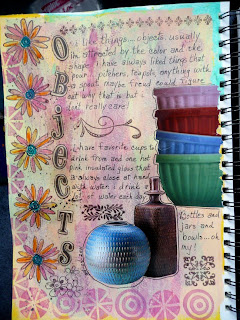 OBJECTS
I like things... objects. usually
I'm attracted by the color and the
shape. I have always liked things that
pour. pitchers, teapots, anything with
a spout. maybe Freud could figure
out why that is but I
don't really care!
I have favorite cups to
drink from and one hot
pink insulated glass that
is always close at hand
with water. I drink a
lot of water each day.
Bottles and
jars and
bowls... oh
my!